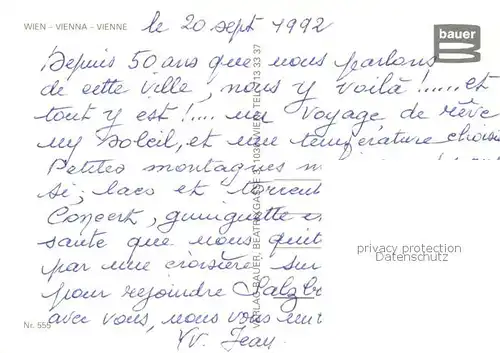 WIEN – VIENNA – VIENNE
le 20 sept 1992
bauer
Depuis 50 ans que nous parlons
de cette ville, nous y voilà !..... et
tout y est !.... un voyage de rêve
un soleil, et une température choisi
Petites montagnes
si, lacs et torrent
Concert, guinguette
sante que nous quit
par une croisière sur
pour rejoindre Salzb
avec vous, nous vous
Jean
VERLAG BAUER, BEATRIXGASSE 3, 1030 WIEN, TEL. 713 33 37
privacy protection
Datenschutz
Nr. 555